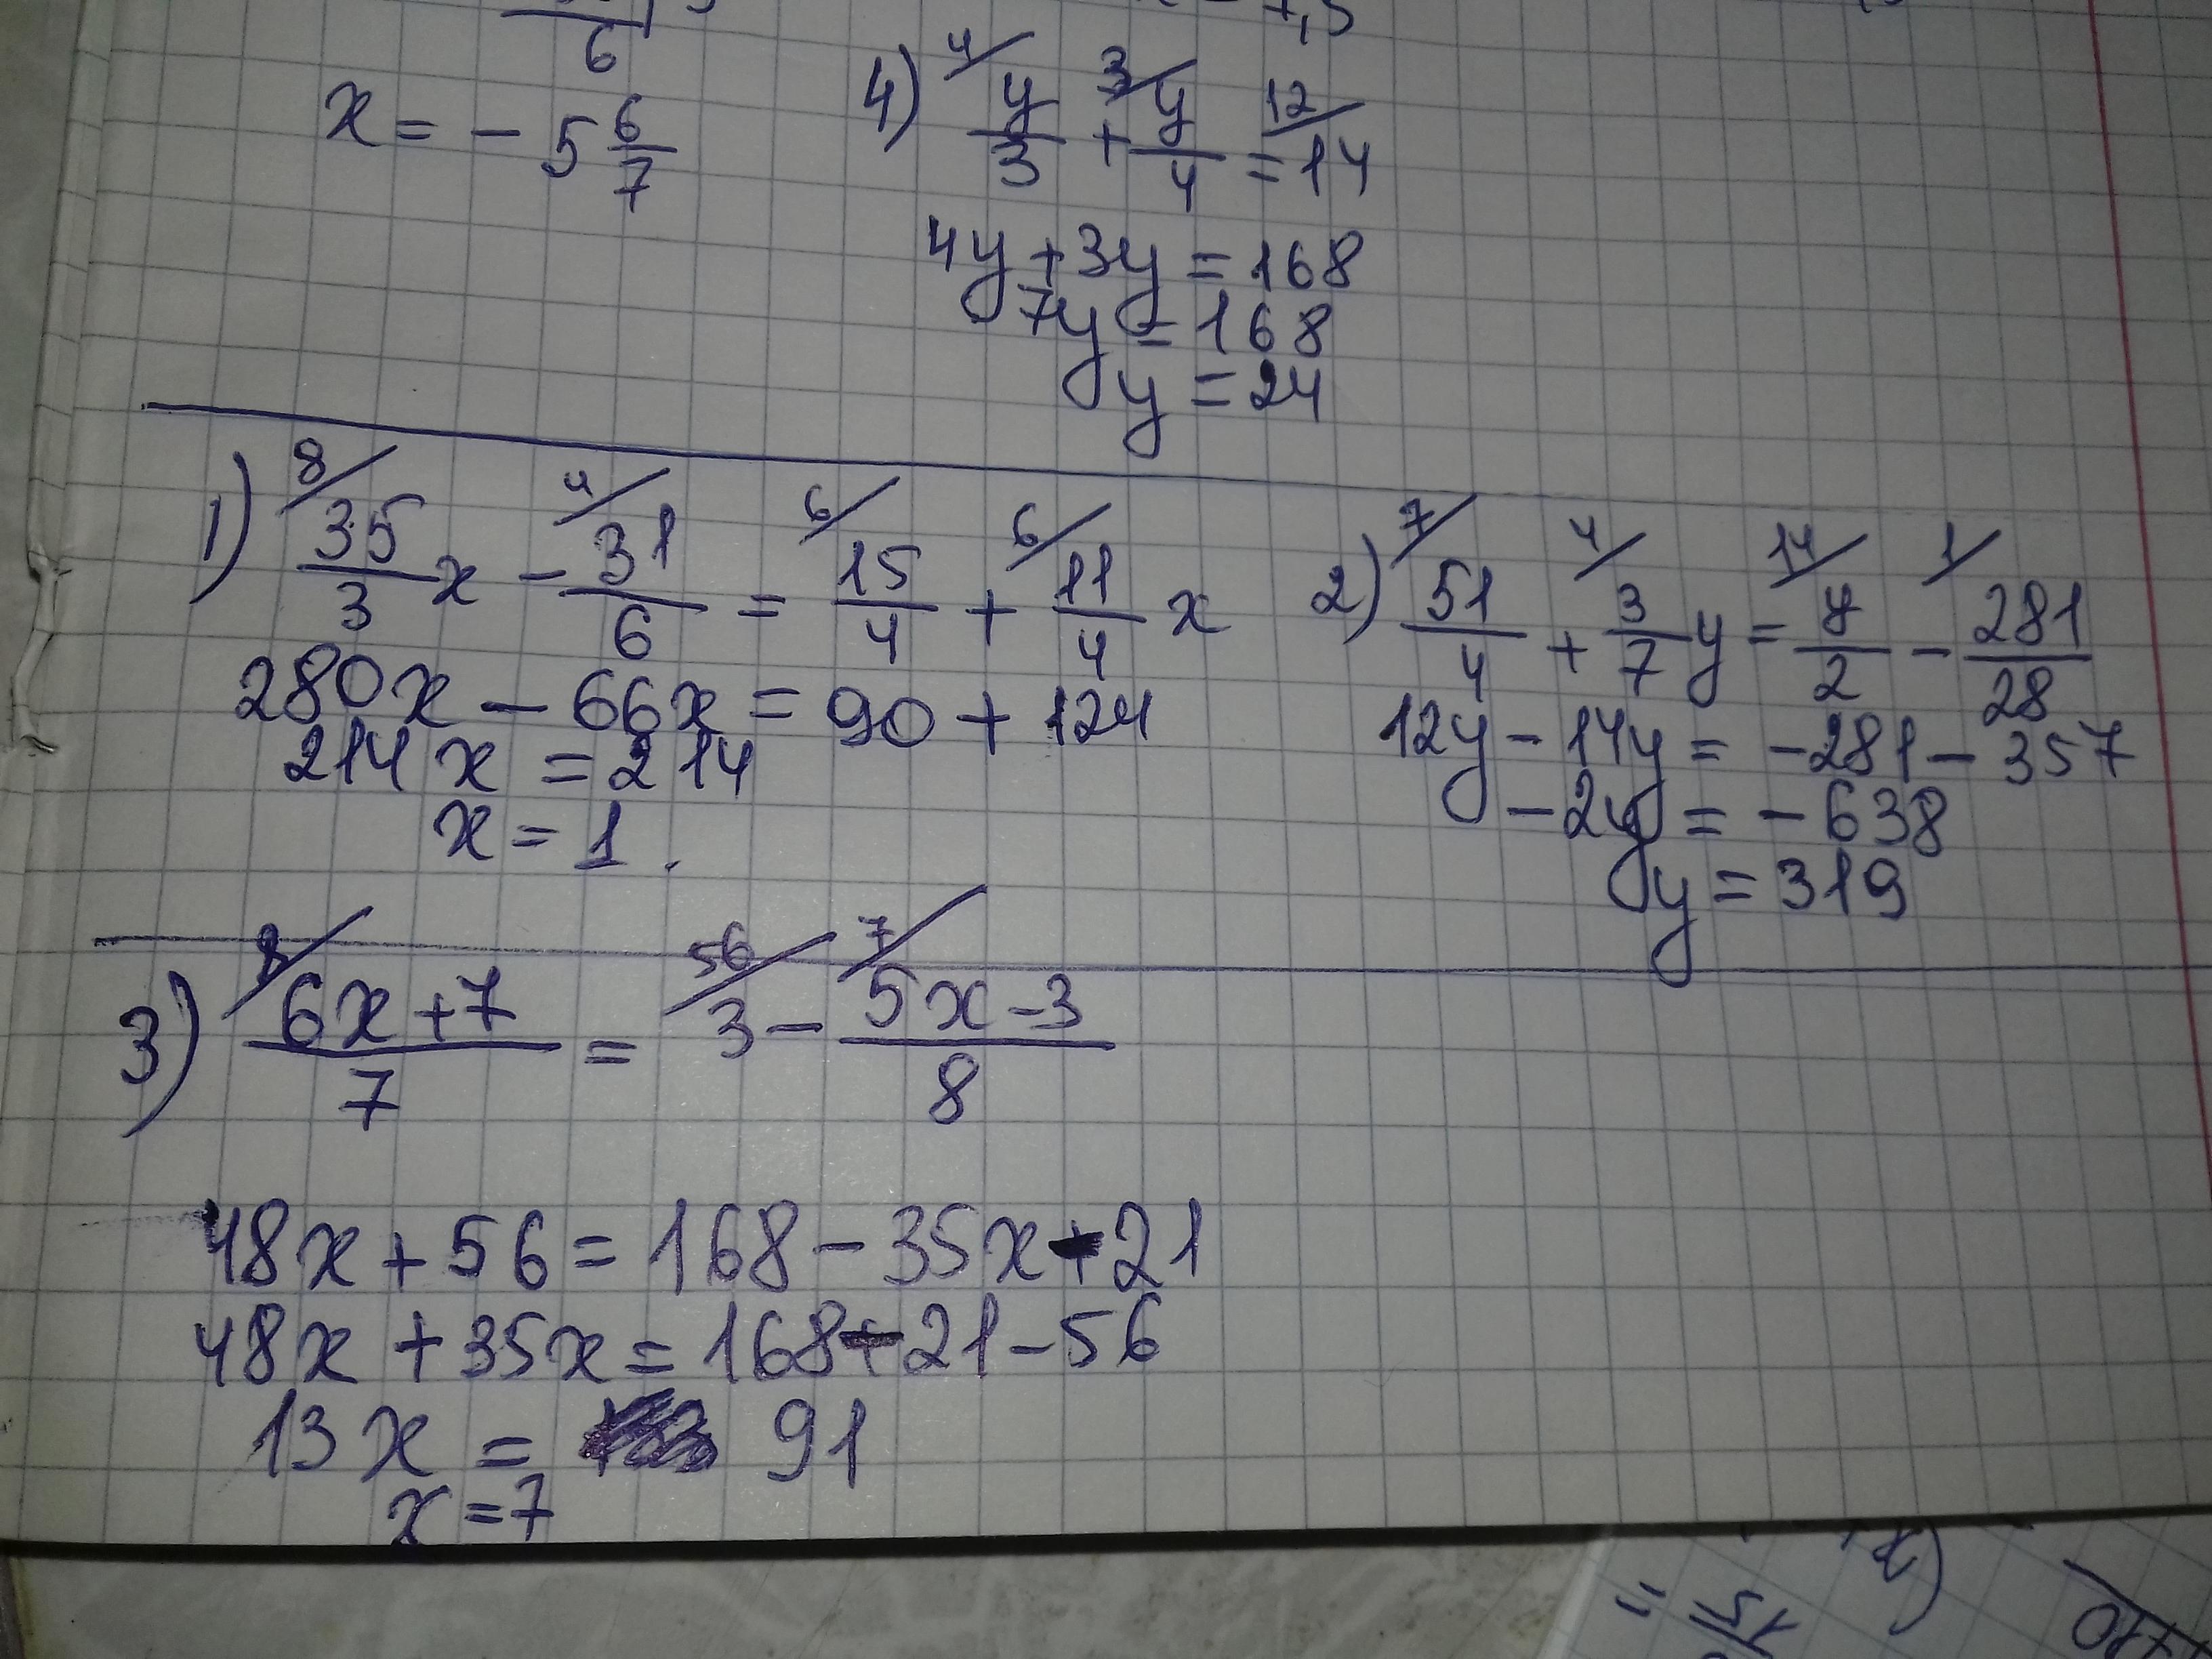 6
x = - 5 6/7
4) 4/ y/3 + 3/ y/4 = 12/ 14
4y + 3y = 168
7y = 168
y = 24
1) 8/ 35/3 x - 4/ 31/6 = 6/ 15/4 + 6/ 11/4 x
280x - 66x = 90 + 124
214x = 214
x = 1.
2) 7/ 51/4 + 4/ 3/7 y = 14/ y/2 - 1/ 281/28
12y - 14y = -281 - 357
-2y = -638
y = 319
3) 8/ (6x+7)/7 = 56/ 3 - 7/ (5x-3)/8
48x + 56 = 168 - 35x + 21
48x + 35x = 168 + 21 - 56
13x = 91
x = 7
15
=